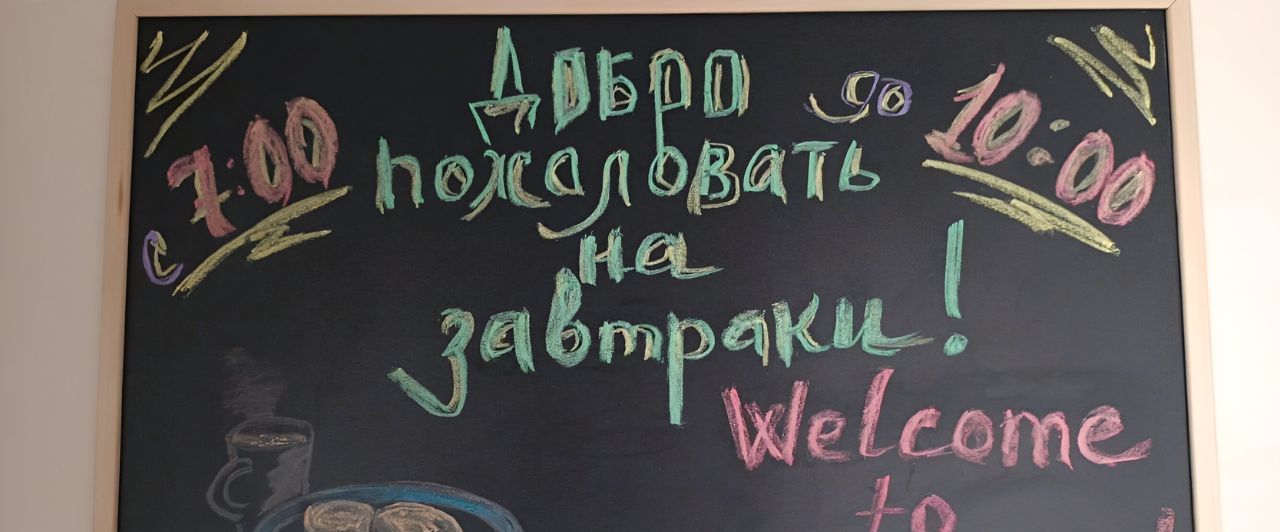 с 7:00
до 10:00
Добро
пожаловать
на
завтраки!
Welcome
to